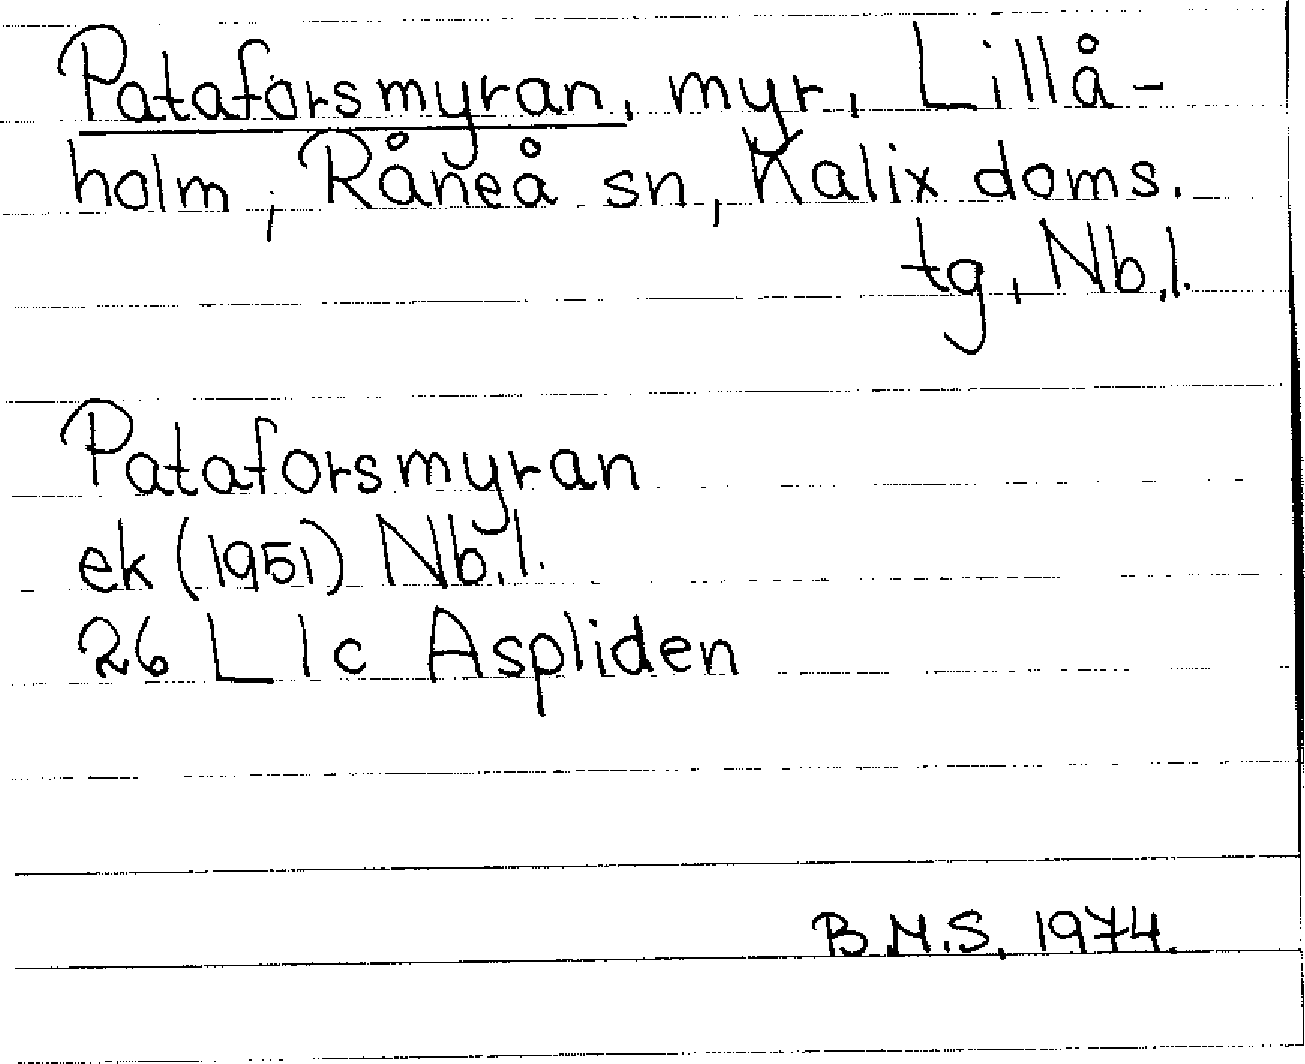 Pataforsmyran, myr, Lillå-
holm, Råneå sn, Kalix doms.
tg, Nb.l.
Pataforsmyran
ek (1951) Nb.l.
26 L 1c Aspliden
B.M.S. 1974.